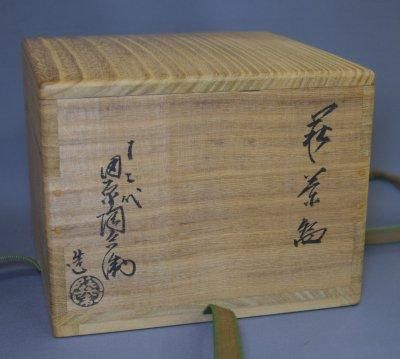 萩茶碗
十二代
田原陶兵衛
造